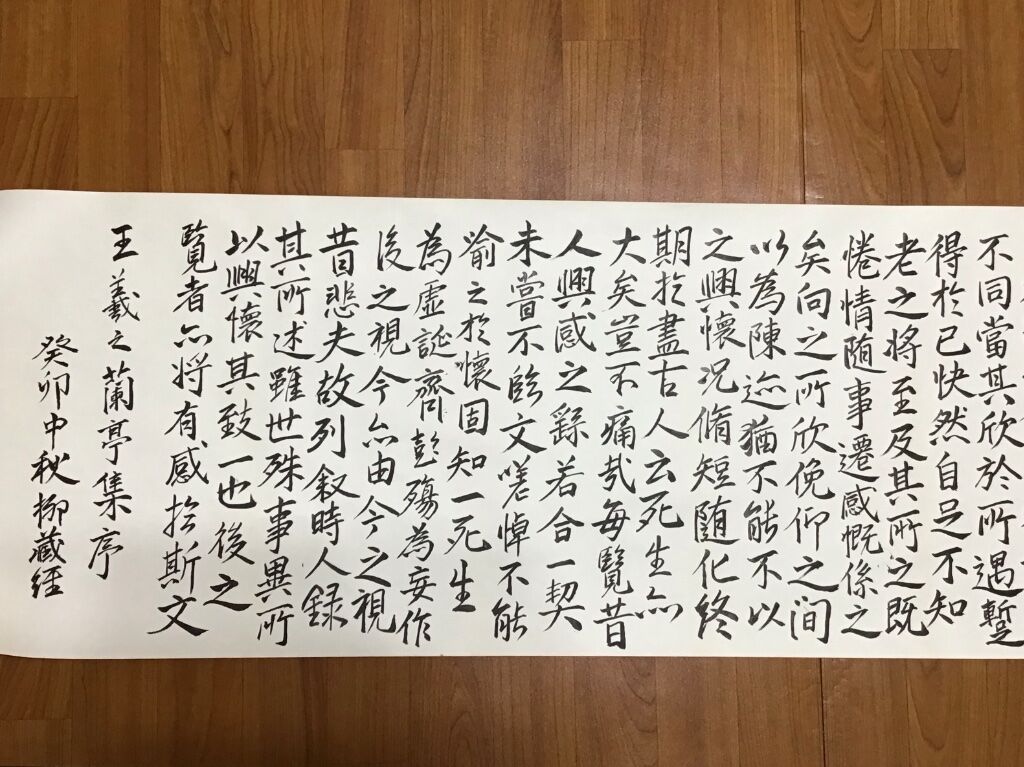 不同當其欣於所遇蹔
得於己快然自足不知
老之將至及其所之既
惓情随事遷感慨係之
矣向之所欣俛仰之間
以為陳迹猶不能不以
之興懷況脩短随化終
期於盡古人云死生亦
大矣豈不痛哉每覽昔
人興感之繇若合一契
未嘗不臨文嗟悼不能
喻之於懷固知一死生
為虛誕齊彭殤為妄作
後之視今亦由今之視
昔悲夫故列叙時人録
其所述雖世殊事異所
以興懷其致一也後之
覽者亦將有感於斯文
王羲之蘭亭集序
癸卯中秋柳藏經